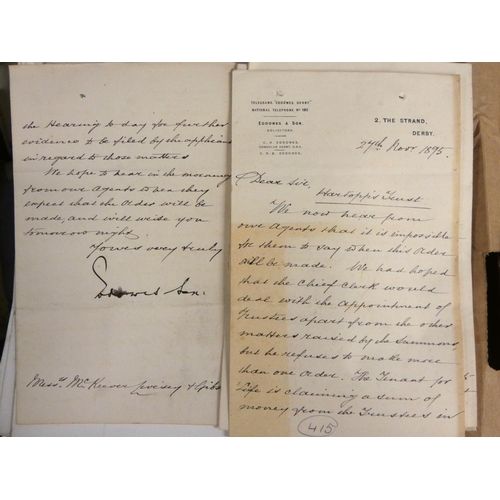 TELEGRAMS "EDDOWES DERBY"
NATIONAL TELEPHONE Nº
EDDOWES & SON,
SOLICITORS
2, THE STRAND,
DERBY.
27th Novr 1895.
Dear Sir,
Hartopp's Trust
We now hear from
our Agents that it is impossible
for them to say when this Order
will be made. We had hoped
that the Chief Clerk would
deal with the appointment of
Trustees apart from the other
matters raised by the Summons,
but he refuses to make more
than one Order. The Tenant for
life is claiming a sum of
money from the Trustees in
415
the Hearing to day for further
evidence to be filed by the applicant
in regard to those matters
We hope to hear in the morning
from our Agents to when they
expect that the Order will be
made, and will write you
tomorrow night.
Yours very truly
Eddowes & Son.
Messrs McKeever &